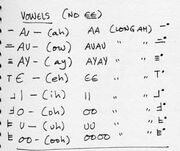 VOWELS (NO EE)
AI - (ah) AA (LONG AH)
AU - (ow) AUAU "
AY - (ay) AYAY " "
E - (eh) EE " "
I - (ih) II " "
O - (oh) OO " "
U - (uh) UU " "
OO - (ooh) OOOO " "